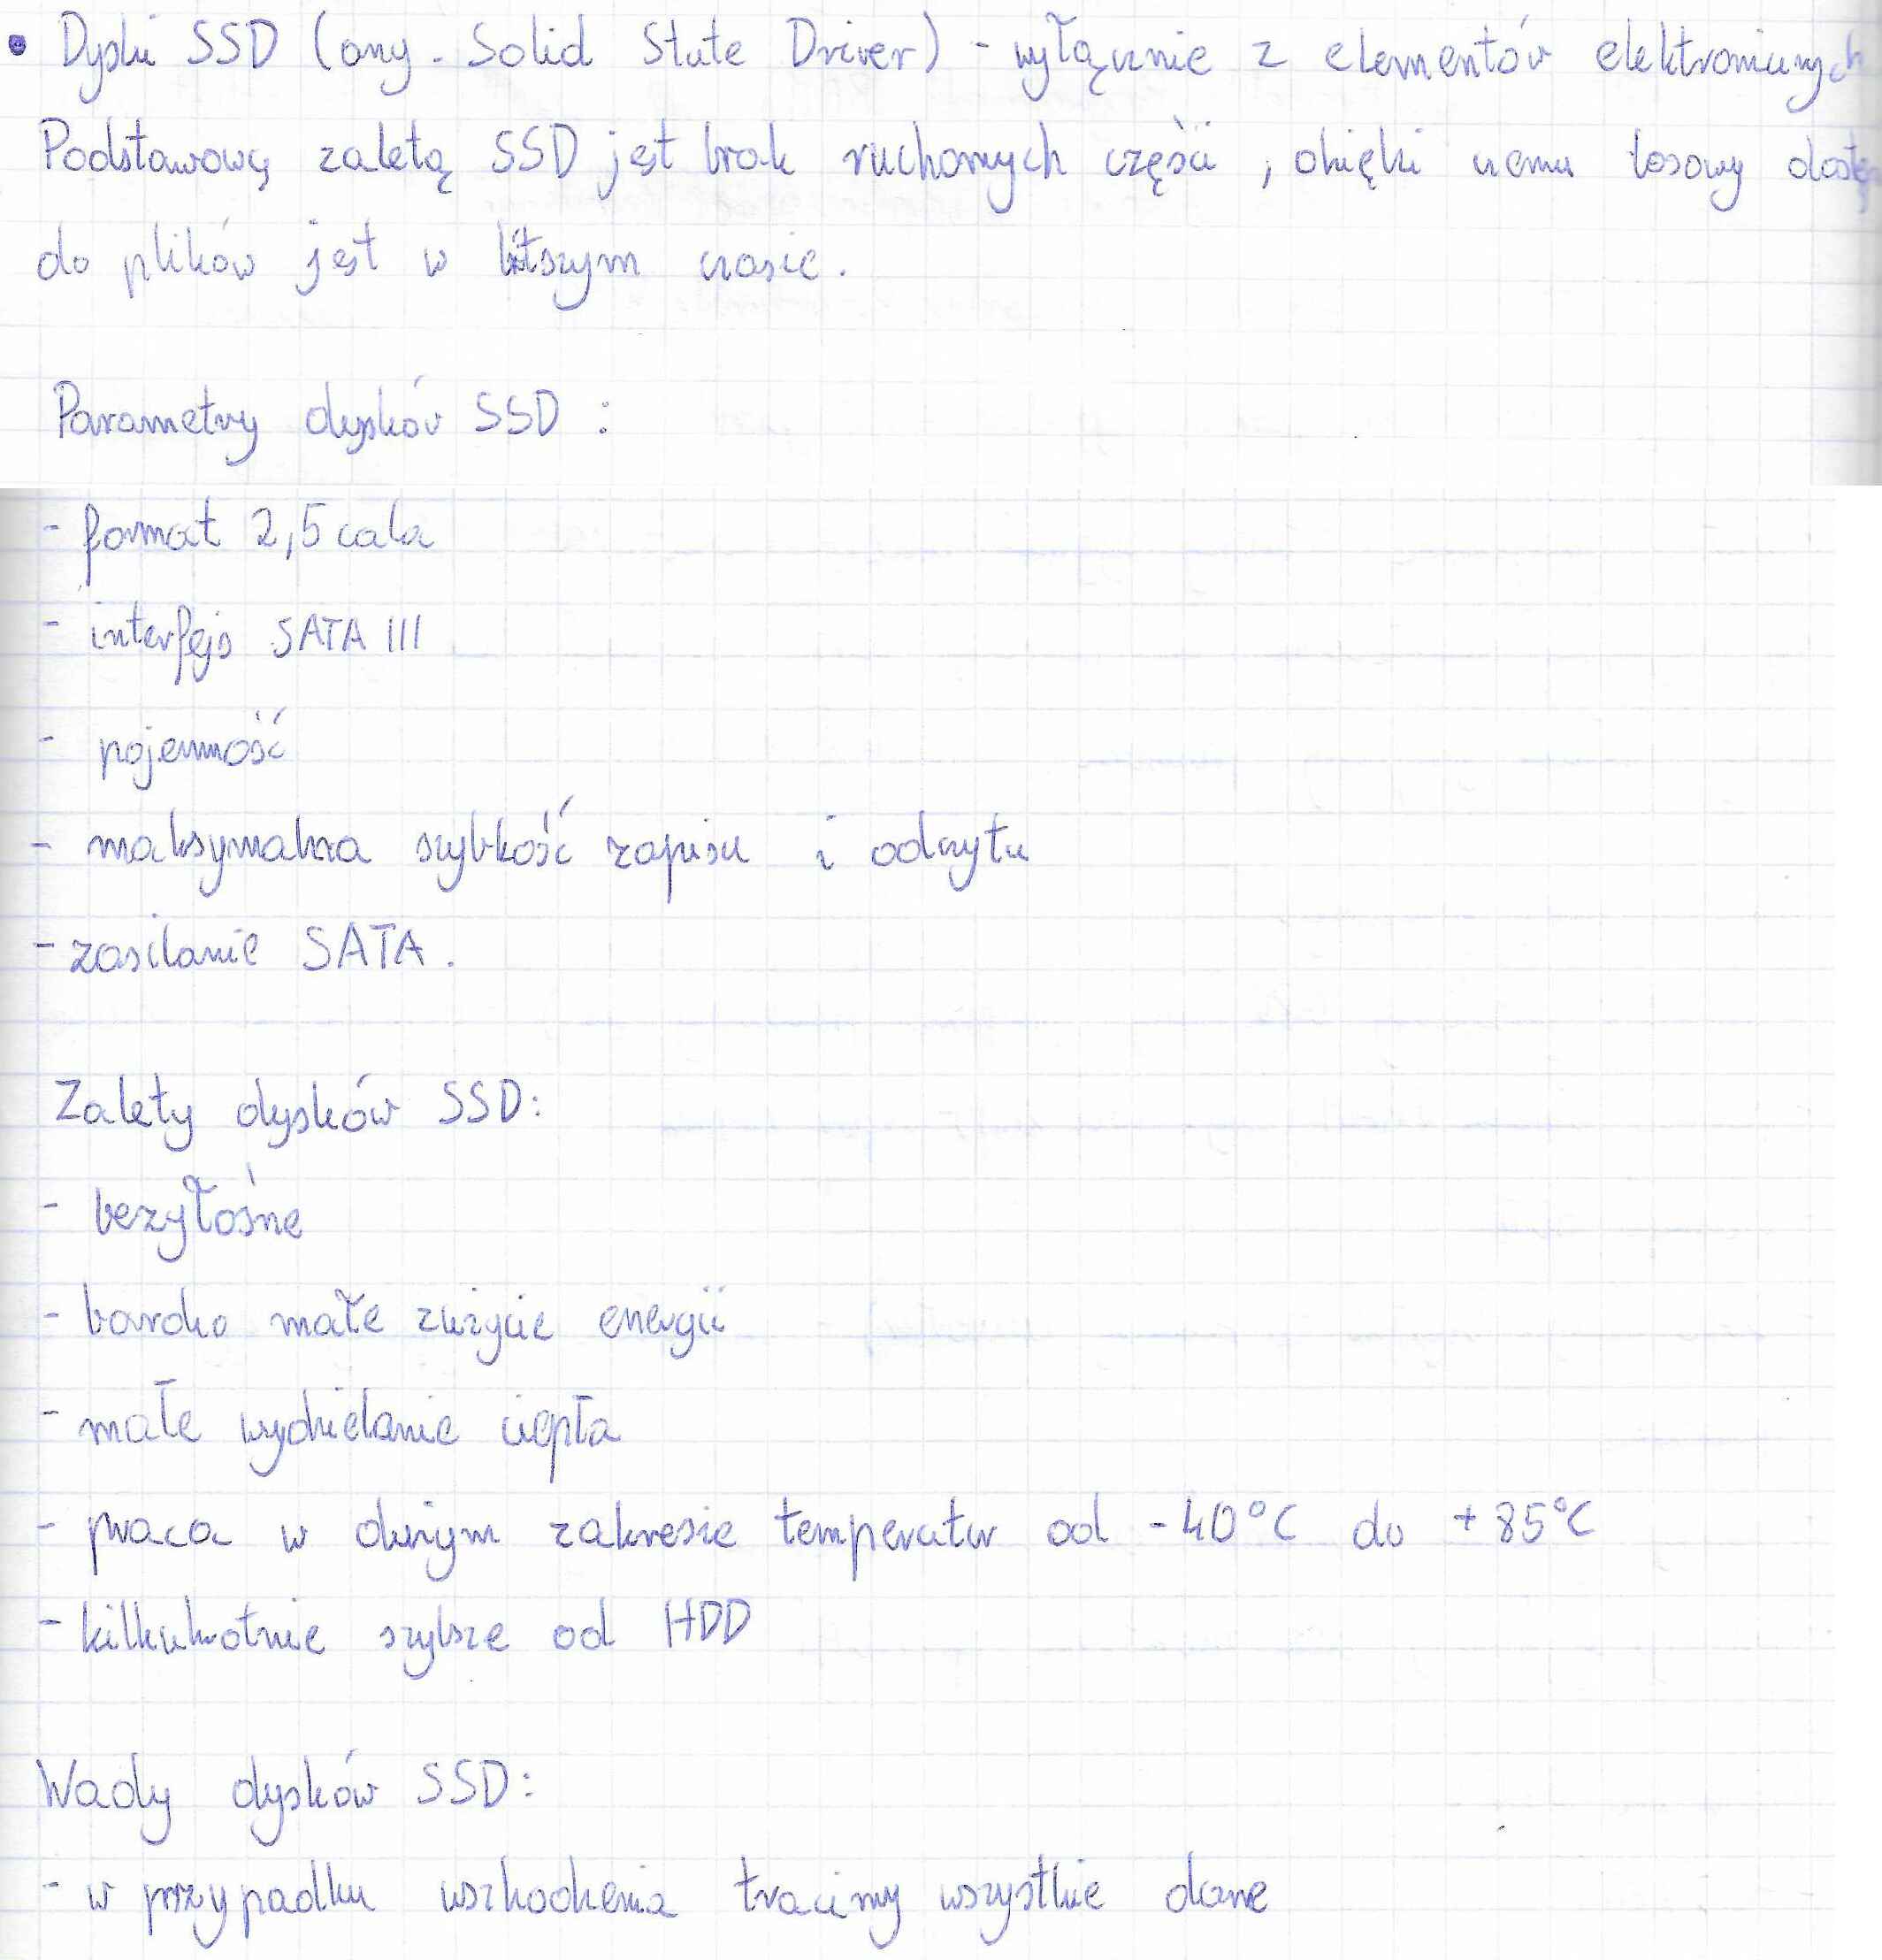 • Dyski SSD (ang. Solid State Driver) - wyłącznie z elementów elektronicznych
Podstawową zaletą SSD jest brak ruchomych części, dzięki czemu losowy dostęp
do plików jest w krótszym czasie.
Parametry dysków SSD:
- format 2,5 cala
- interfejs SATA III
- pojemność
- maksymalna szybkość zapisu i odczytu
- zasilanie SATA.
Zalety dysków SSD:
- bezgłośne
- bardzo małe zużycie energii
- małe wydzielanie ciepła
- praca w dużym zakresie temperatur od -40°C do +85°C
- kilkukrotnie szybsze od HDD
Wady dysków SSD:
- w przypadku uszkodzenia tracimy wszystkie dane